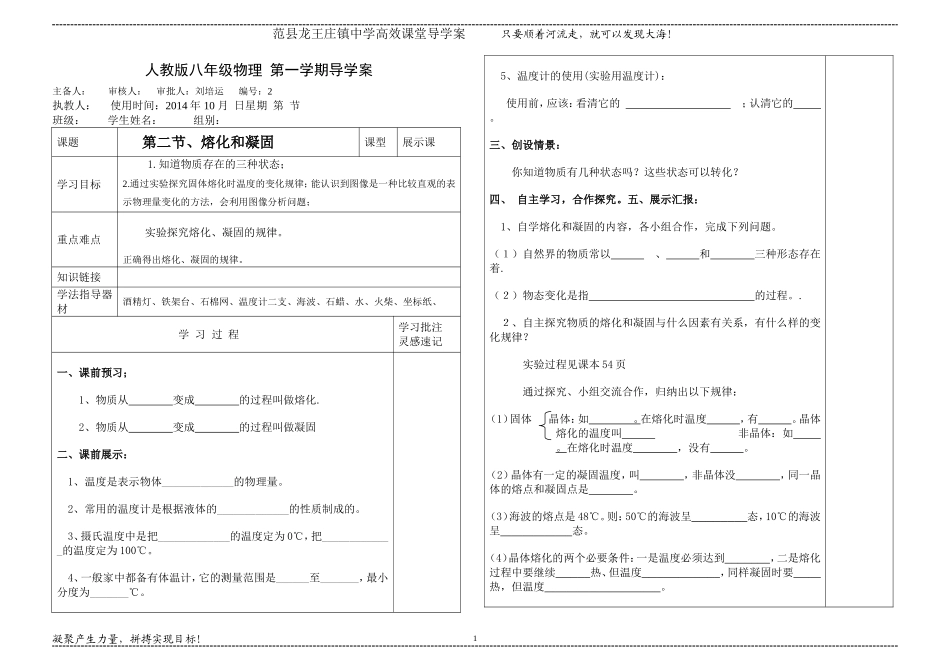 范县龙王庄镇中学高效课堂导学案 只要顺着河流走，就可以发现大海！
人教版八年级物理 第一学期导学案
主备人： 审核人： 审批人：刘培运 编号：2
执教人： 使用时间：2014年10月 日星期 第 节
班级： 学生姓名： 组别：
课题 第二节、熔化和凝固 课型 展示课
学习目标
1.知道物质存在的三种状态；
2.通过实验探究固体熔化时温度的变化规律；能认识到图像是一种比较直观的表
示物理量变化的方法，会利用图像分析问题；
重点难点
实验探究熔化、凝固的规律。
正确得出熔化、凝固的规律。
知识链接
学法指导器材
酒精灯、铁架台、石棉网、温度计二支、海波、石蜡、水、火柴、坐标纸、
学 习 过 程
学习批注
灵感速记
一、课前预习；
1、物质从________变成________的过程叫做熔化.
2、物质从________变成________的过程叫做凝固
二、课前展示：
1、温度是表示物体_____________的物理量。
2、常用的温度计是根据液体的_____________的性质制成的。
3、摄氏温度中是把_____________的温度定为0℃，把____________
_的温度定为100℃。
4、一般家中都备有体温计，它的测量范围是______至_______，最小
分度为_______℃。
5、温度计的使用(实验用温度计)：
使用前，应该：看清它的 ___________________ ；认清它的_____
。
三、创设情景：
你知道物质有几种状态吗？这些状态可以转化？
四、 自主学习，合作探究。五、展示汇报：
1、自学熔化和凝固的内容，各小组合作，完成下列问题。
（１）自然界的物质常以______ 、______和________三种形态存在
着.
（２）物态变化是指______________________________的过程。.
２、自主探究物质的熔化和凝固与什么因素有关系，有什么样的变
化规律？
实验过程见课本54页
通过探究、小组交流合作，归纳出以下规律：
(1)固体 晶体：如________。在熔化时温度______，有______。晶体
熔化的温度叫______ 非晶体：如_____
_。在熔化时温度________，没有______。
(2)晶体有一定的凝固温度，叫________，非晶体没________，同一晶
体的熔点和凝固点是________。
(3)海波的熔点是48℃。则：50℃的海波呈__________态，10℃的海波
呈________态。
(4)晶体熔化的两个必要条件：一是温度必须达到________，二是熔化
过程中要继续______热、但温度______________，同样凝固时要_____
热，但温度_____________________。
凝聚产生力量，拼搏实现目标！ 1